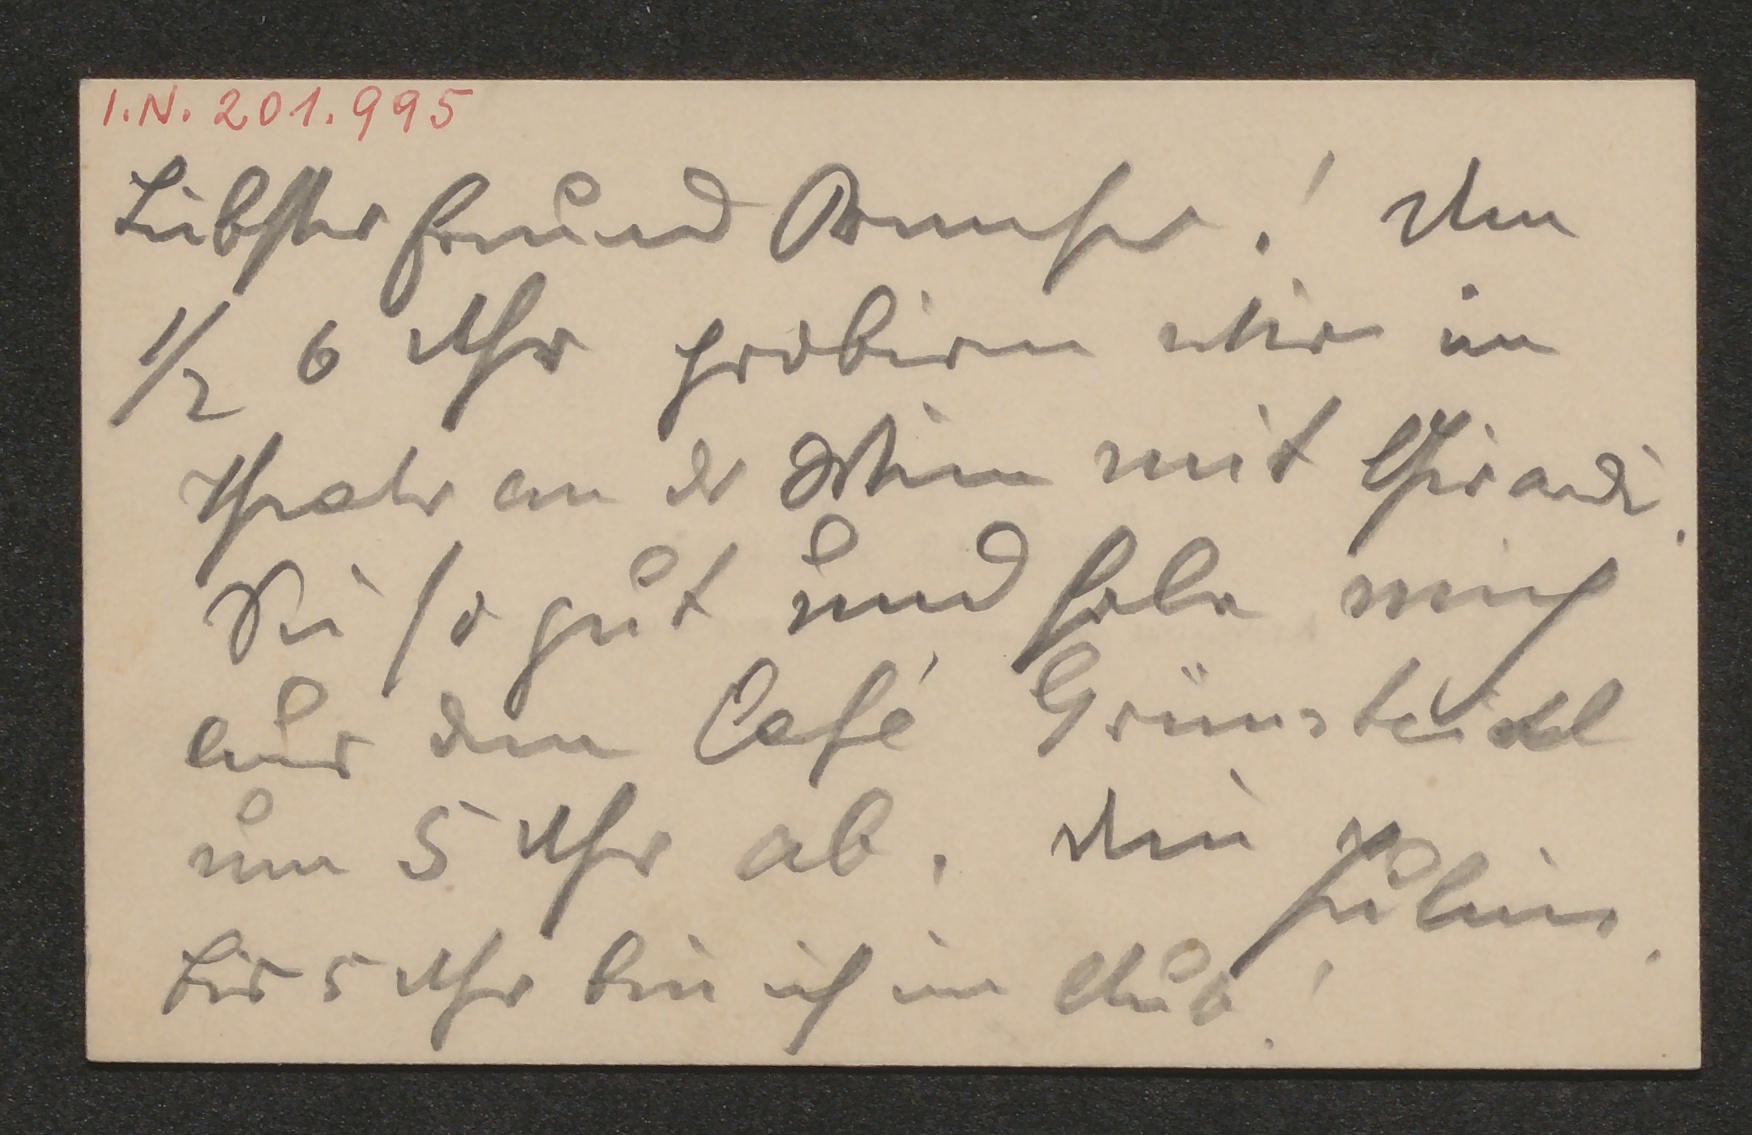 I.N. 201.995
Liebster Freund Kremser! Um
1/2 6 Uhr probiren wir im
Theater an der Wien mit Girardi.
Sei so gut und hole mich
aus dem Café Grünsteidl
um 5 Uhr ab. Dein
Julius.
Bis 5 Uhr bin ich im Club!